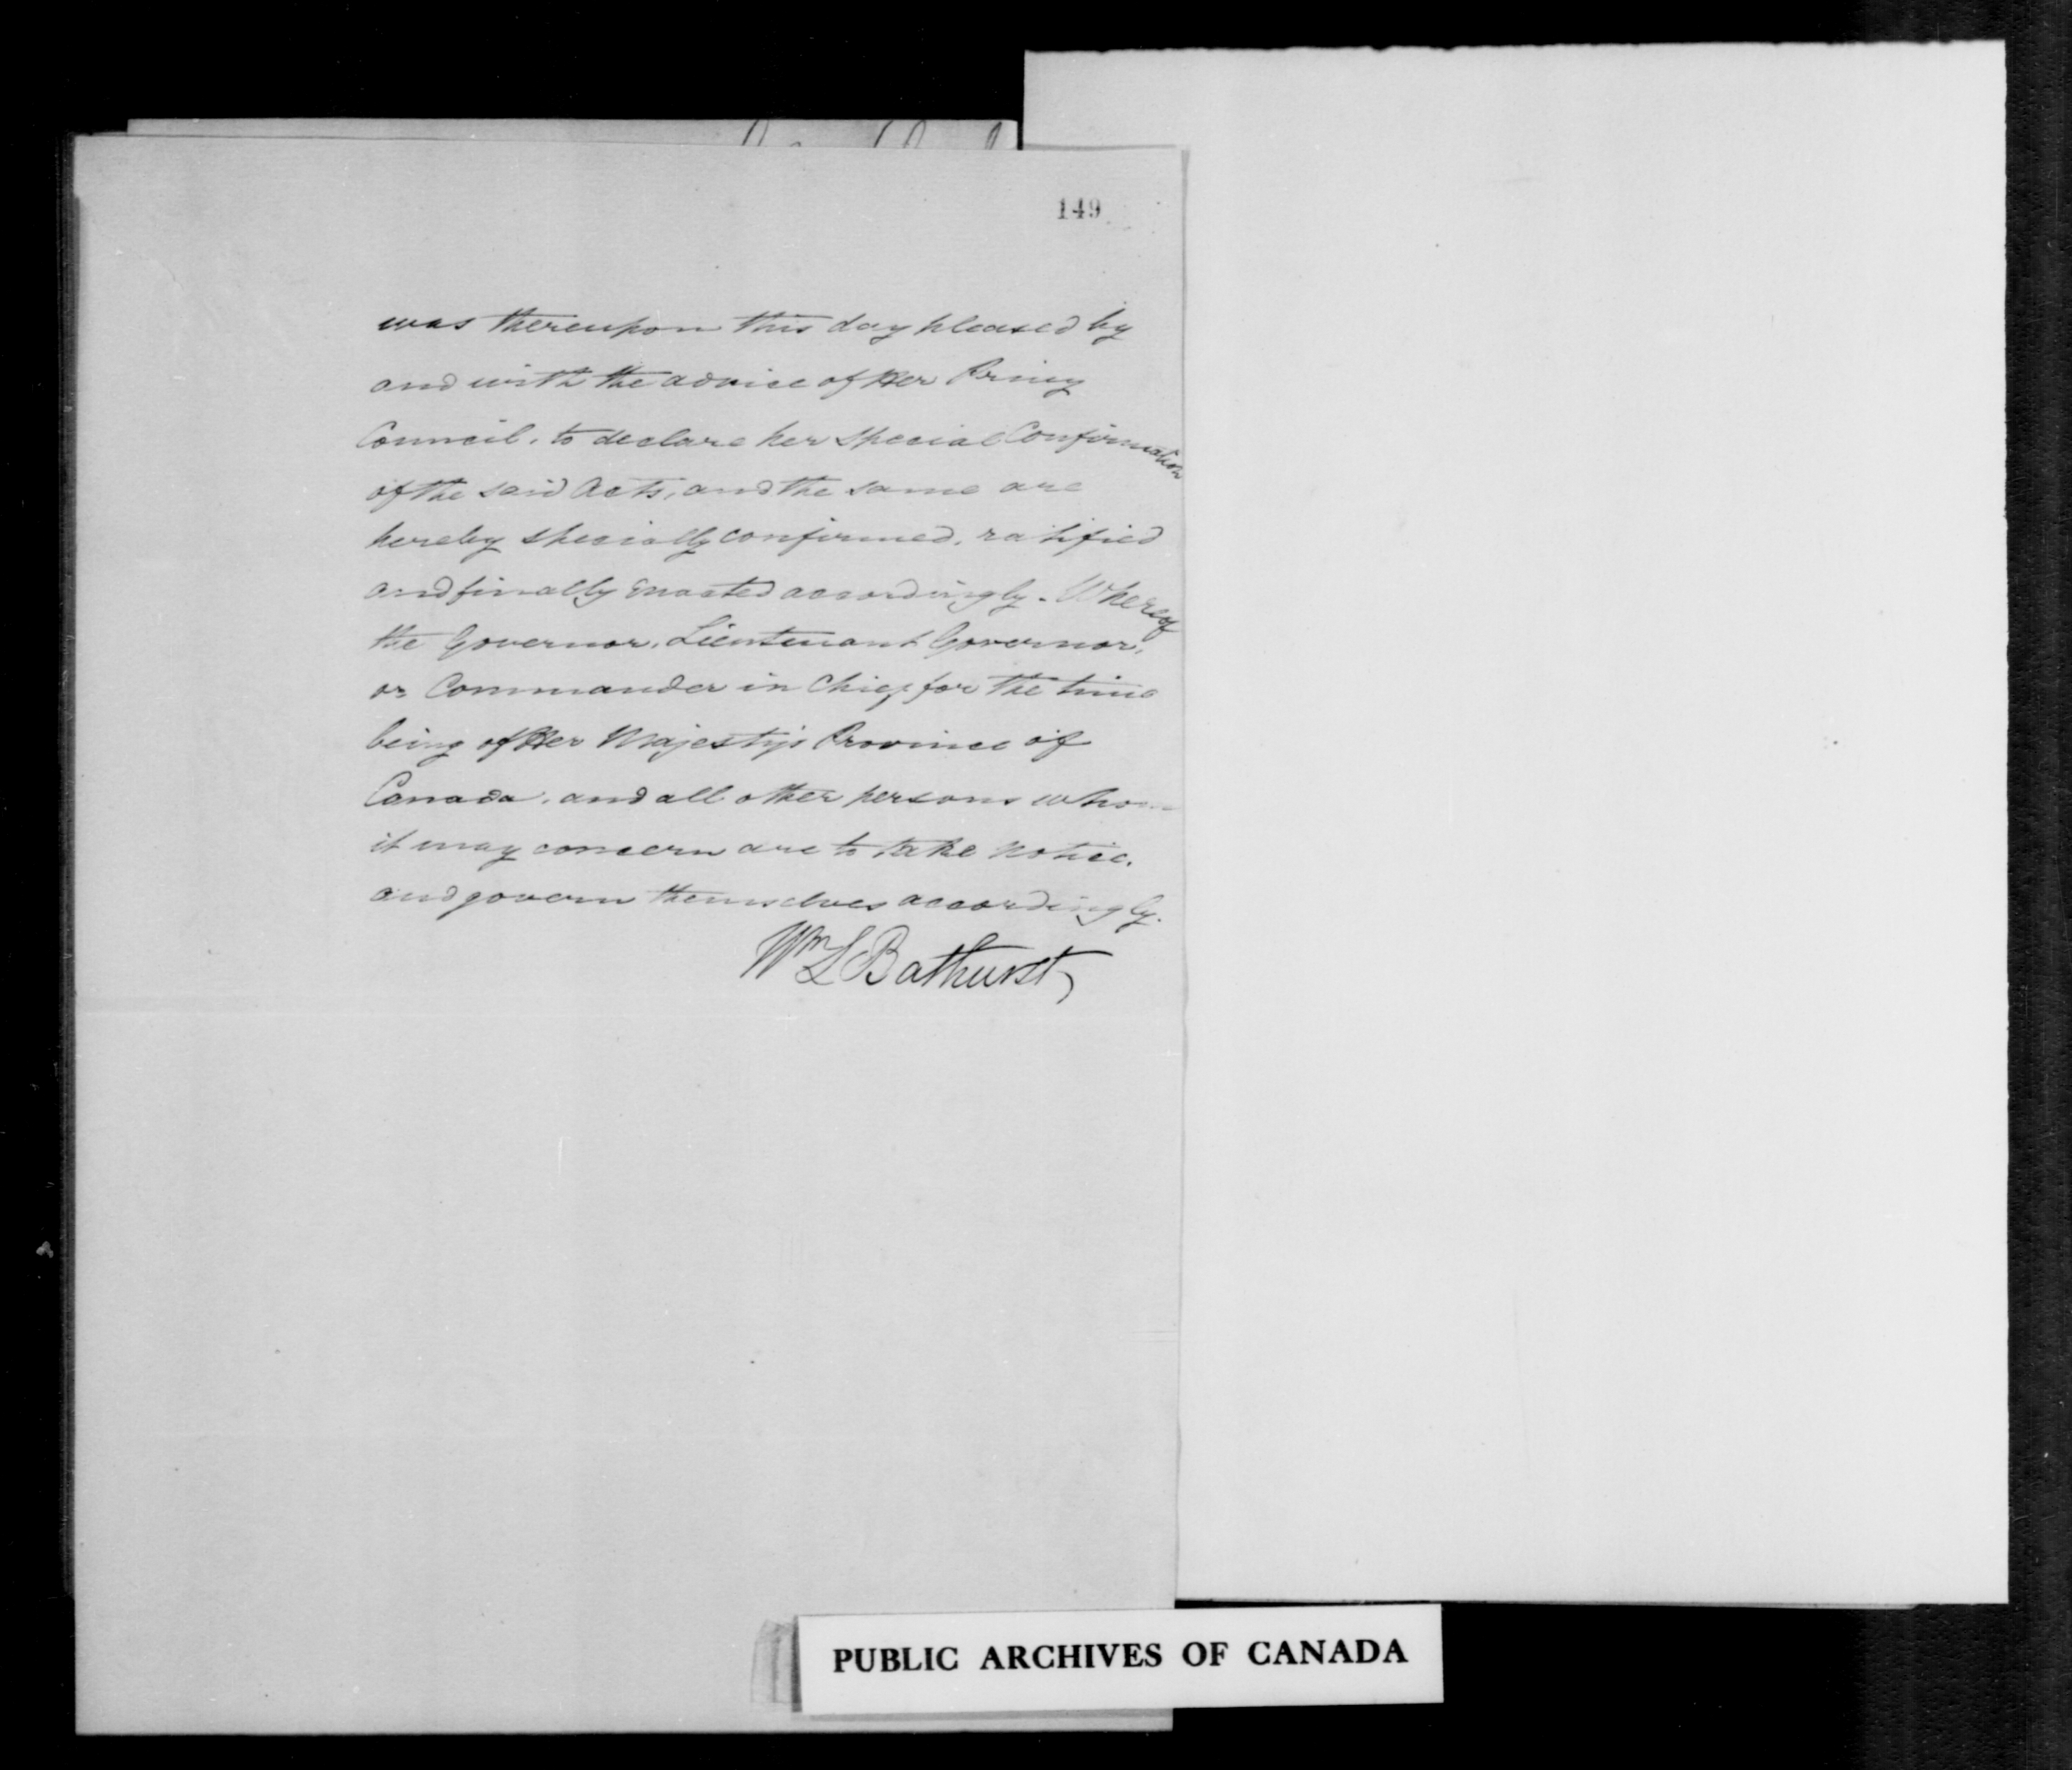 149
was thereupon this day pleased by
and with the advice of Her Privy
Council, to declare her special Confirmation
of the said Acts, and the same are
hereby specially confirmed, ratified
and finally Enacted accordingly. Whereof
the Governor, Lieutenant Governor,
or Commander in Chief for the time
being of Her Majesty's Province of
Canada, and all other persons whom
it may concern are to take notice,
and govern themselves accordingly.
Wm L Bathurst
PUBLIC ARCHIVES OF CANADA